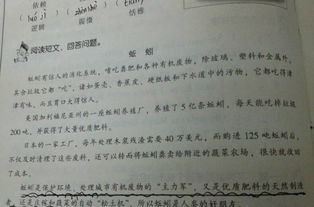 依赖
阅读短文，回答问题。
蚯蚓
蚯蚓有惊人的消化系统，嗜吃粪肥和各种有机废物，除玻璃、塑料和金属外，
其余垃圾它都“吃”，诸如蛋壳、香蕉皮、硬纸板和下水道中的污物，它都吃得津
津有味，而且胃口大得惊人。
美国加利福尼亚州的一座蚯蚓养殖厂，养殖了5亿条蚯蚓，每天能吃掉垃圾
200吨，并获得了大量优质肥料。
日本的一家工厂，每年处理木浆残渣需要40万美元，而购进125吨蚯蚓后，
不仅及时清理了这些废料，还可以转而将蚯蚓粪卖给附近的蔬菜农场，很快就收回
了成本。
蚯蚓是保护环境，处理城市有机废物的“主力军”，又是优质肥料的天然制造
者，还是庄稼和蔬菜的自动“松土机”，所以蚯蚓是人类的好朋友。